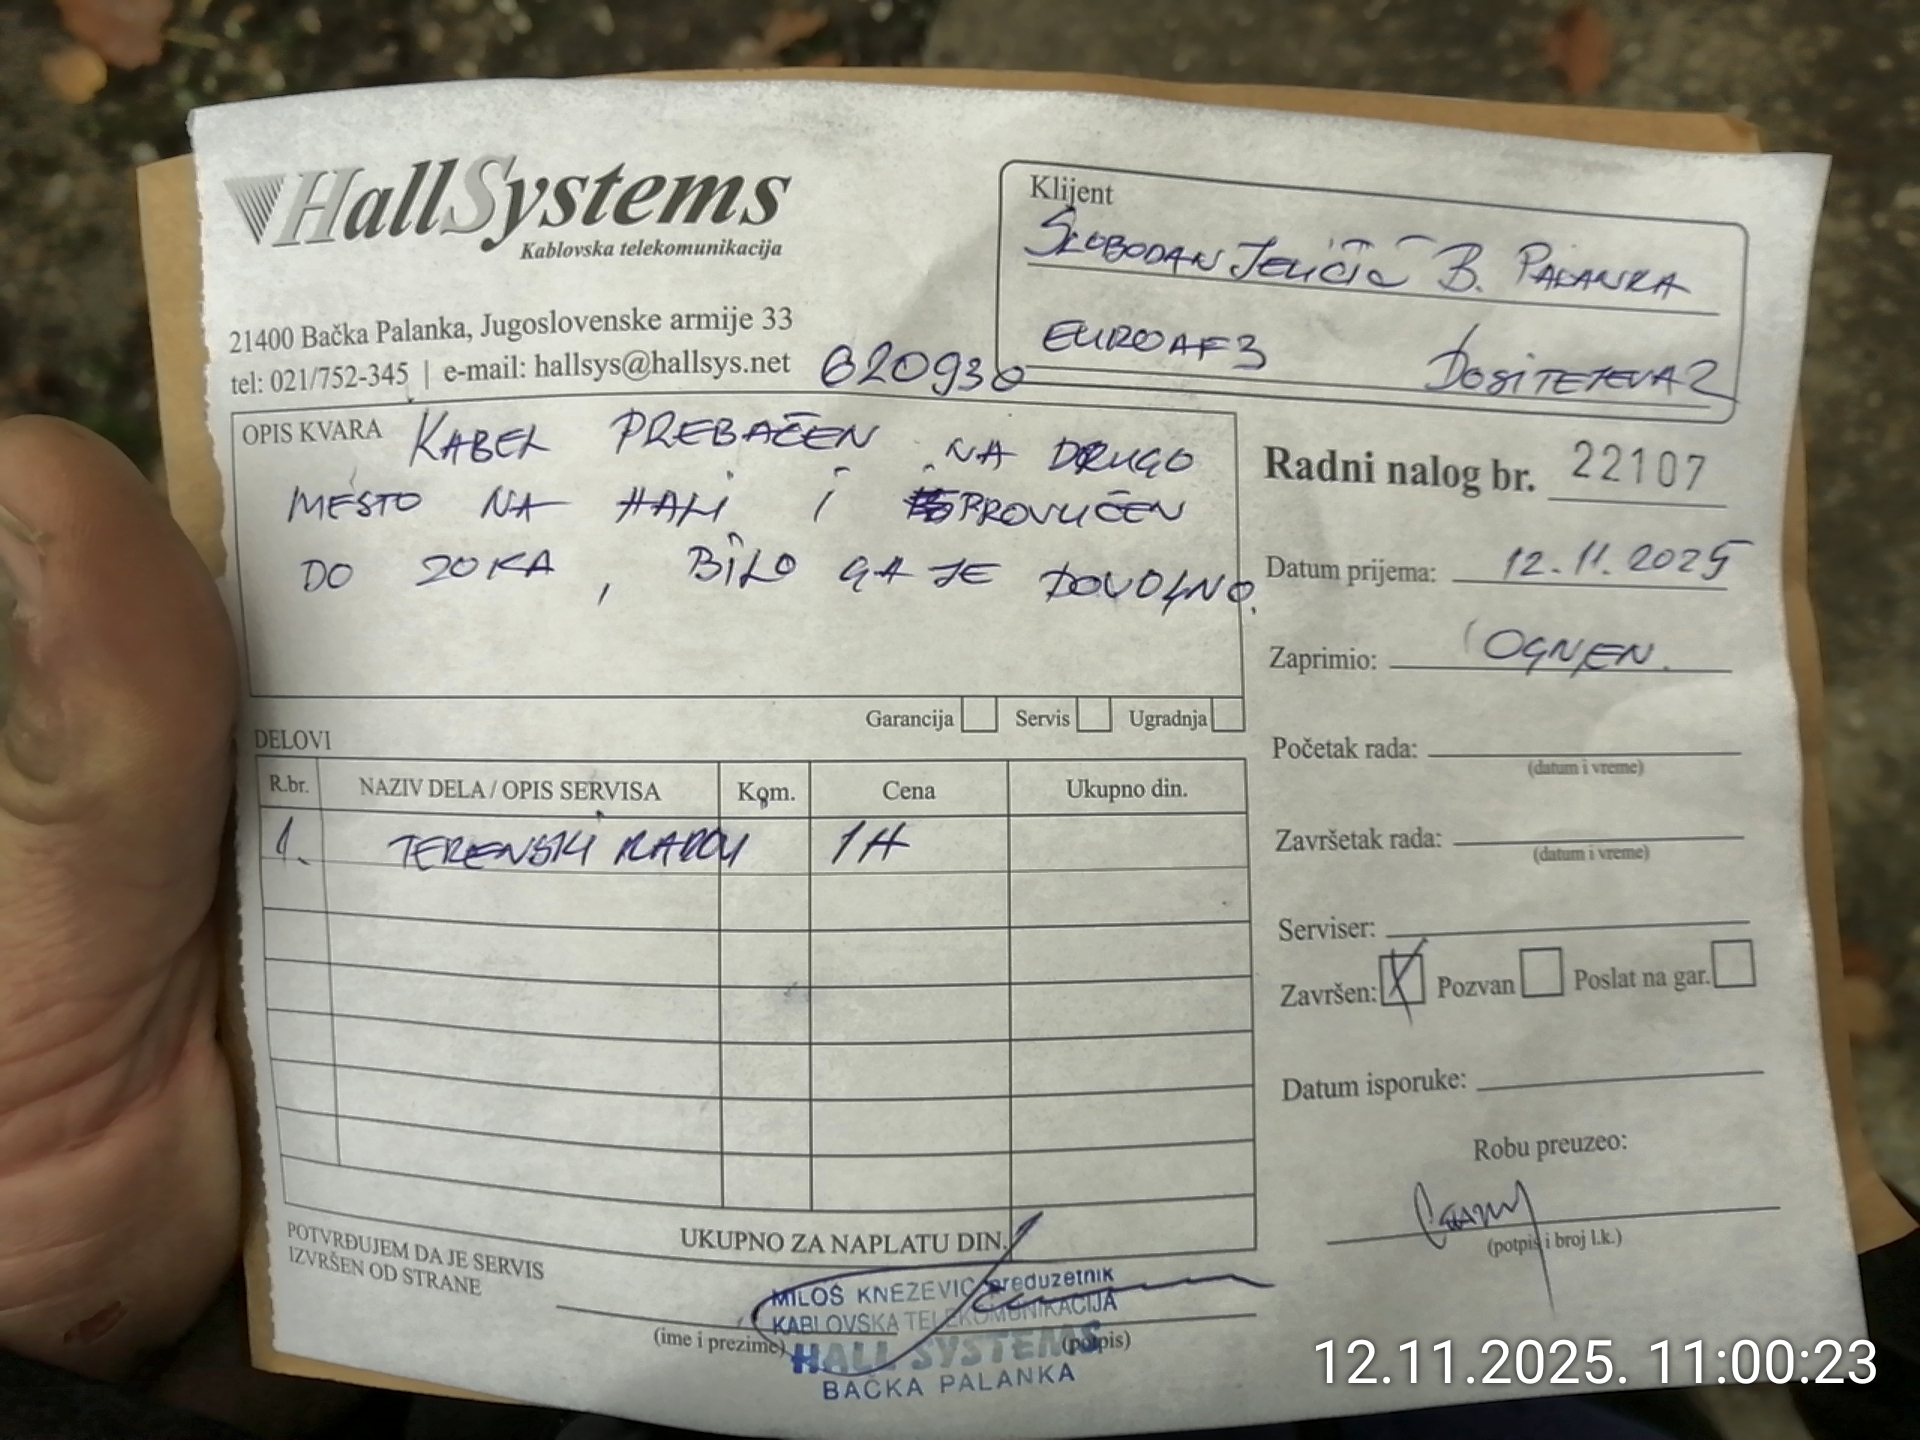 HallSystems
Kablovska telekomunikacija
21400 Bačka Palanka, Jugoslovenske armije 33
tel: 021/752-345 | e-mail: hallsys@hallsys.net
620930
Klijent
SLOBODAN JELIČIĆ B. PALANKA
EUROAF3 DOSITEJEVA 2
OPIS KVARA KABEL PREBAČEN NA DRUGO
MESTO NA HALI I PROVUČEN
DO ZOKA, BILO GA JE DOVOLJNO.
Garancija Servis Ugradnja
Radni nalog br. 22107
Datum prijema: 12.11.2025
Zaprimio: OGNJEN.
Početak rada:
(datum i vreme)
Završetak rada:
(datum i vreme)
Serviser:
Završen: X Pozvan Poslat na gar.
Datum isporuke:
Robu preuzeo:
(potpis i broj l.k.)
DELOVI
R.br. NAZIV DELA / OPIS SERVISA Kom. Cena Ukupno din.
1. TERENSKI RADOVI 1H
UKUPNO ZA NAPLATU DIN.
POTVRĐUJEM DA JE SERVIS
IZVRŠEN OD STRANE
(ime i prezime) (potpis)
MILOŠ KNEŽEVIĆ preduzetnik
KABLOVSKA TELEKOMUNIKACIJA
HALL SYSTEMS
BAČKA PALANKA
12.11.2025. 11:00:23